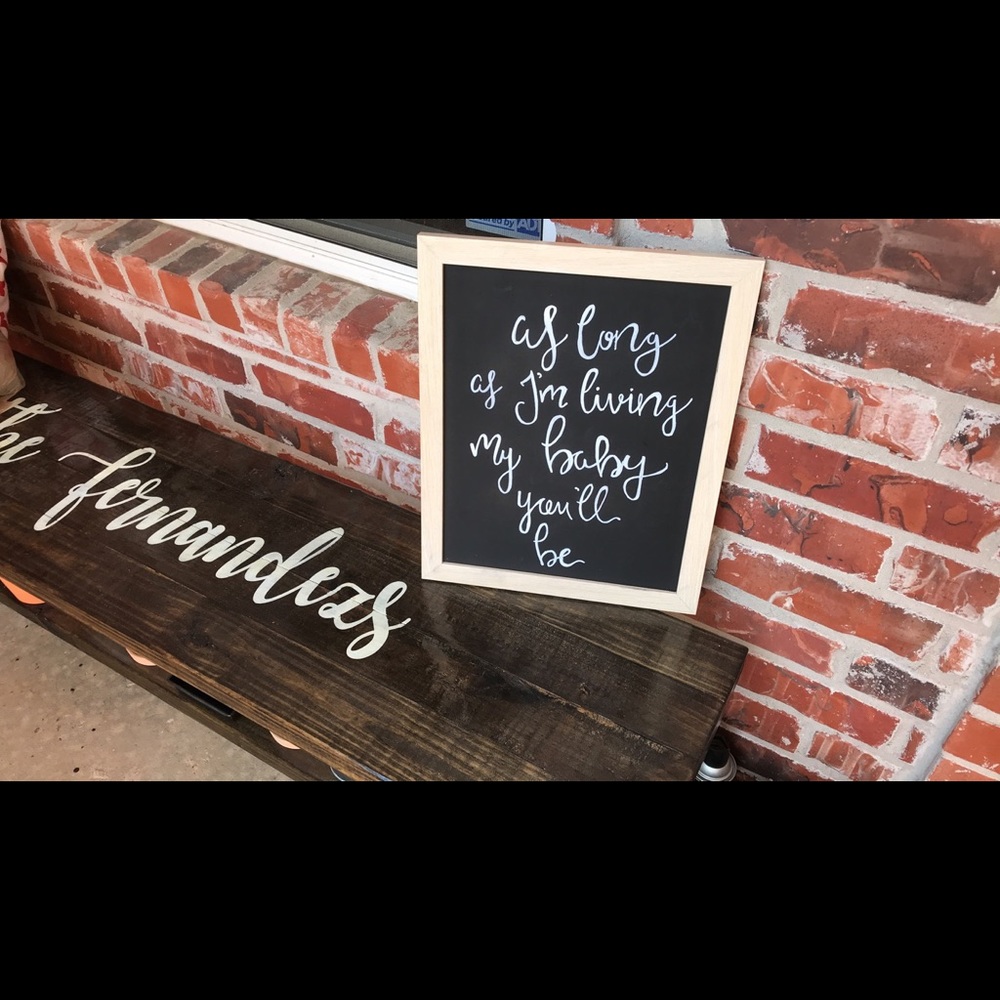 powered by AD
as long
as I'm living
my baby
you'll
be
the fernandezs